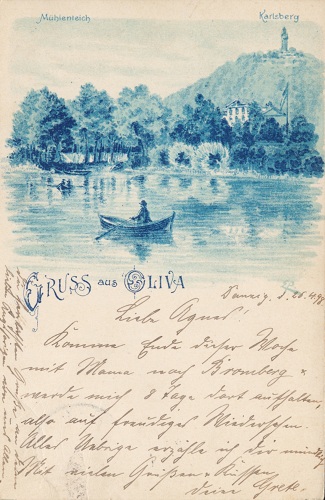 Mühlenteich
Karlsberg
GRUSS aus OLIVA
Danzig, d. 26.4.98
Liebe Agnes!
Komme Ende dieser Woche
mit Mama nach Bromberg &
werde mich 8 Tage dort aufhalten,
also auf freudiges Wiedersehen.
Alles Uebrige erzähle ich Dir mündlich
Mit vielen Grüßen & Küssen
Deine Grete.